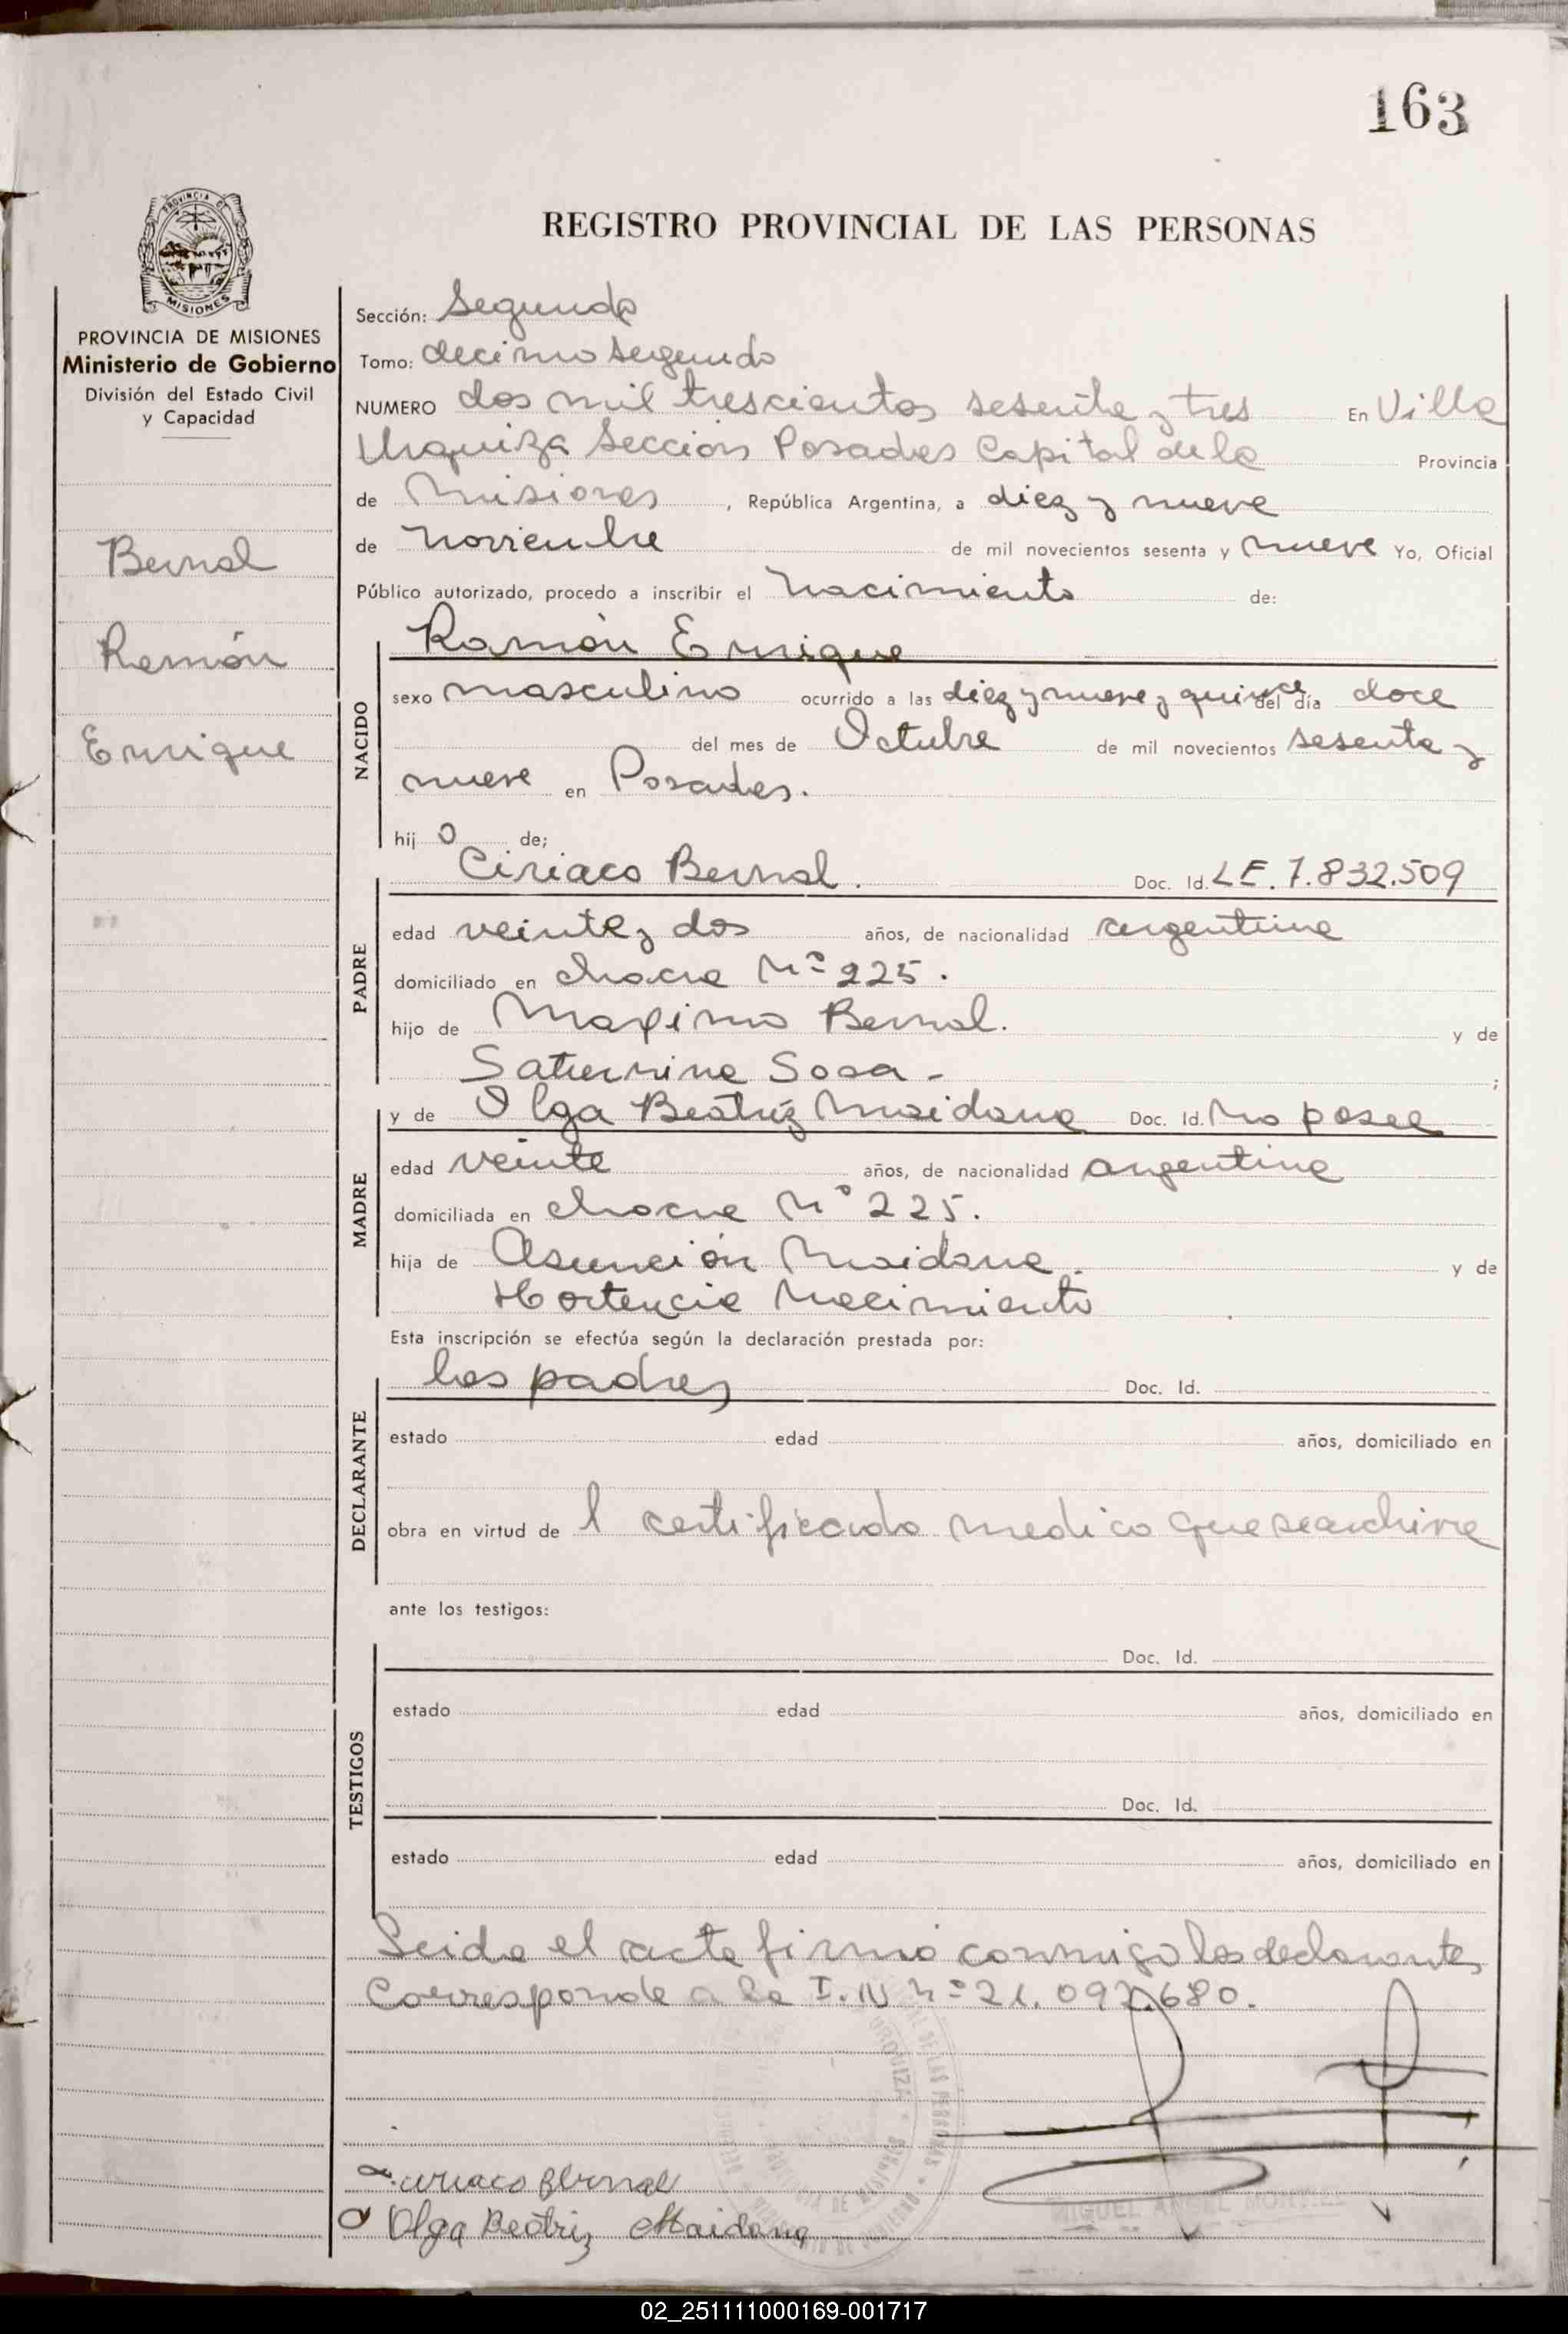 163
REGISTRO PROVINCIAL DE LAS PERSONAS
PROVINCIA DE MISIONES
Ministerio de Gobierno
División del Estado Civil
y Capacidad
Bernal
Ramón
Enrique
Sección: Segunda
Tomo: decimo segundo
NUMERO dos mil trescientos sesenta y tres En Villa
Urquiza Sección Posadas Capital de la Provincia
de Misiones, República Argentina, a diez y nueve
de noviembre de mil novecientos sesenta y nueve Yo, Oficial
Público autorizado, procedo a inscribir el nacimiento de:
NACIDO
Ramón Enrique
sexo masculino ocurrido a las diez y nueve y quince del día doce
del mes de Octubre de mil novecientos sesenta y
nueve en Posadas.
hij o de;
PADRE
Ciriaco Bernal. Doc. Id. LE. 7.832.509
edad veinte y dos años, de nacionalidad argentina
domiciliado en chacra Nº 225.
hijo de Maximo Bernal. y de
Saturnina Sosa -;
MADRE
y de Olga Beatriz Maidana Doc. Id. No posee
edad veinte años, de nacionalidad argentina
domiciliada en chacra Nº 225.
hija de Asunción Maidana. y de
Hortencia Nacimiento
Esta inscripción se efectúa según la declaración prestada por:
DECLARANTE
los padres Doc. Id.
estado edad años, domiciliado en
obra en virtud de l certificado medico que se archiva
ante los testigos:
TESTIGOS
Doc. Id.
estado edad años, domiciliado en
Doc. Id.
estado edad años, domiciliado en
Leida el acta firma conmigo los declarantes
Corresponde a la I.N nº 21.092.680.
Ciriaco Bernal
Olga Beatriz Maidana
MIGUEL ANGEL
02_251111000169-001717